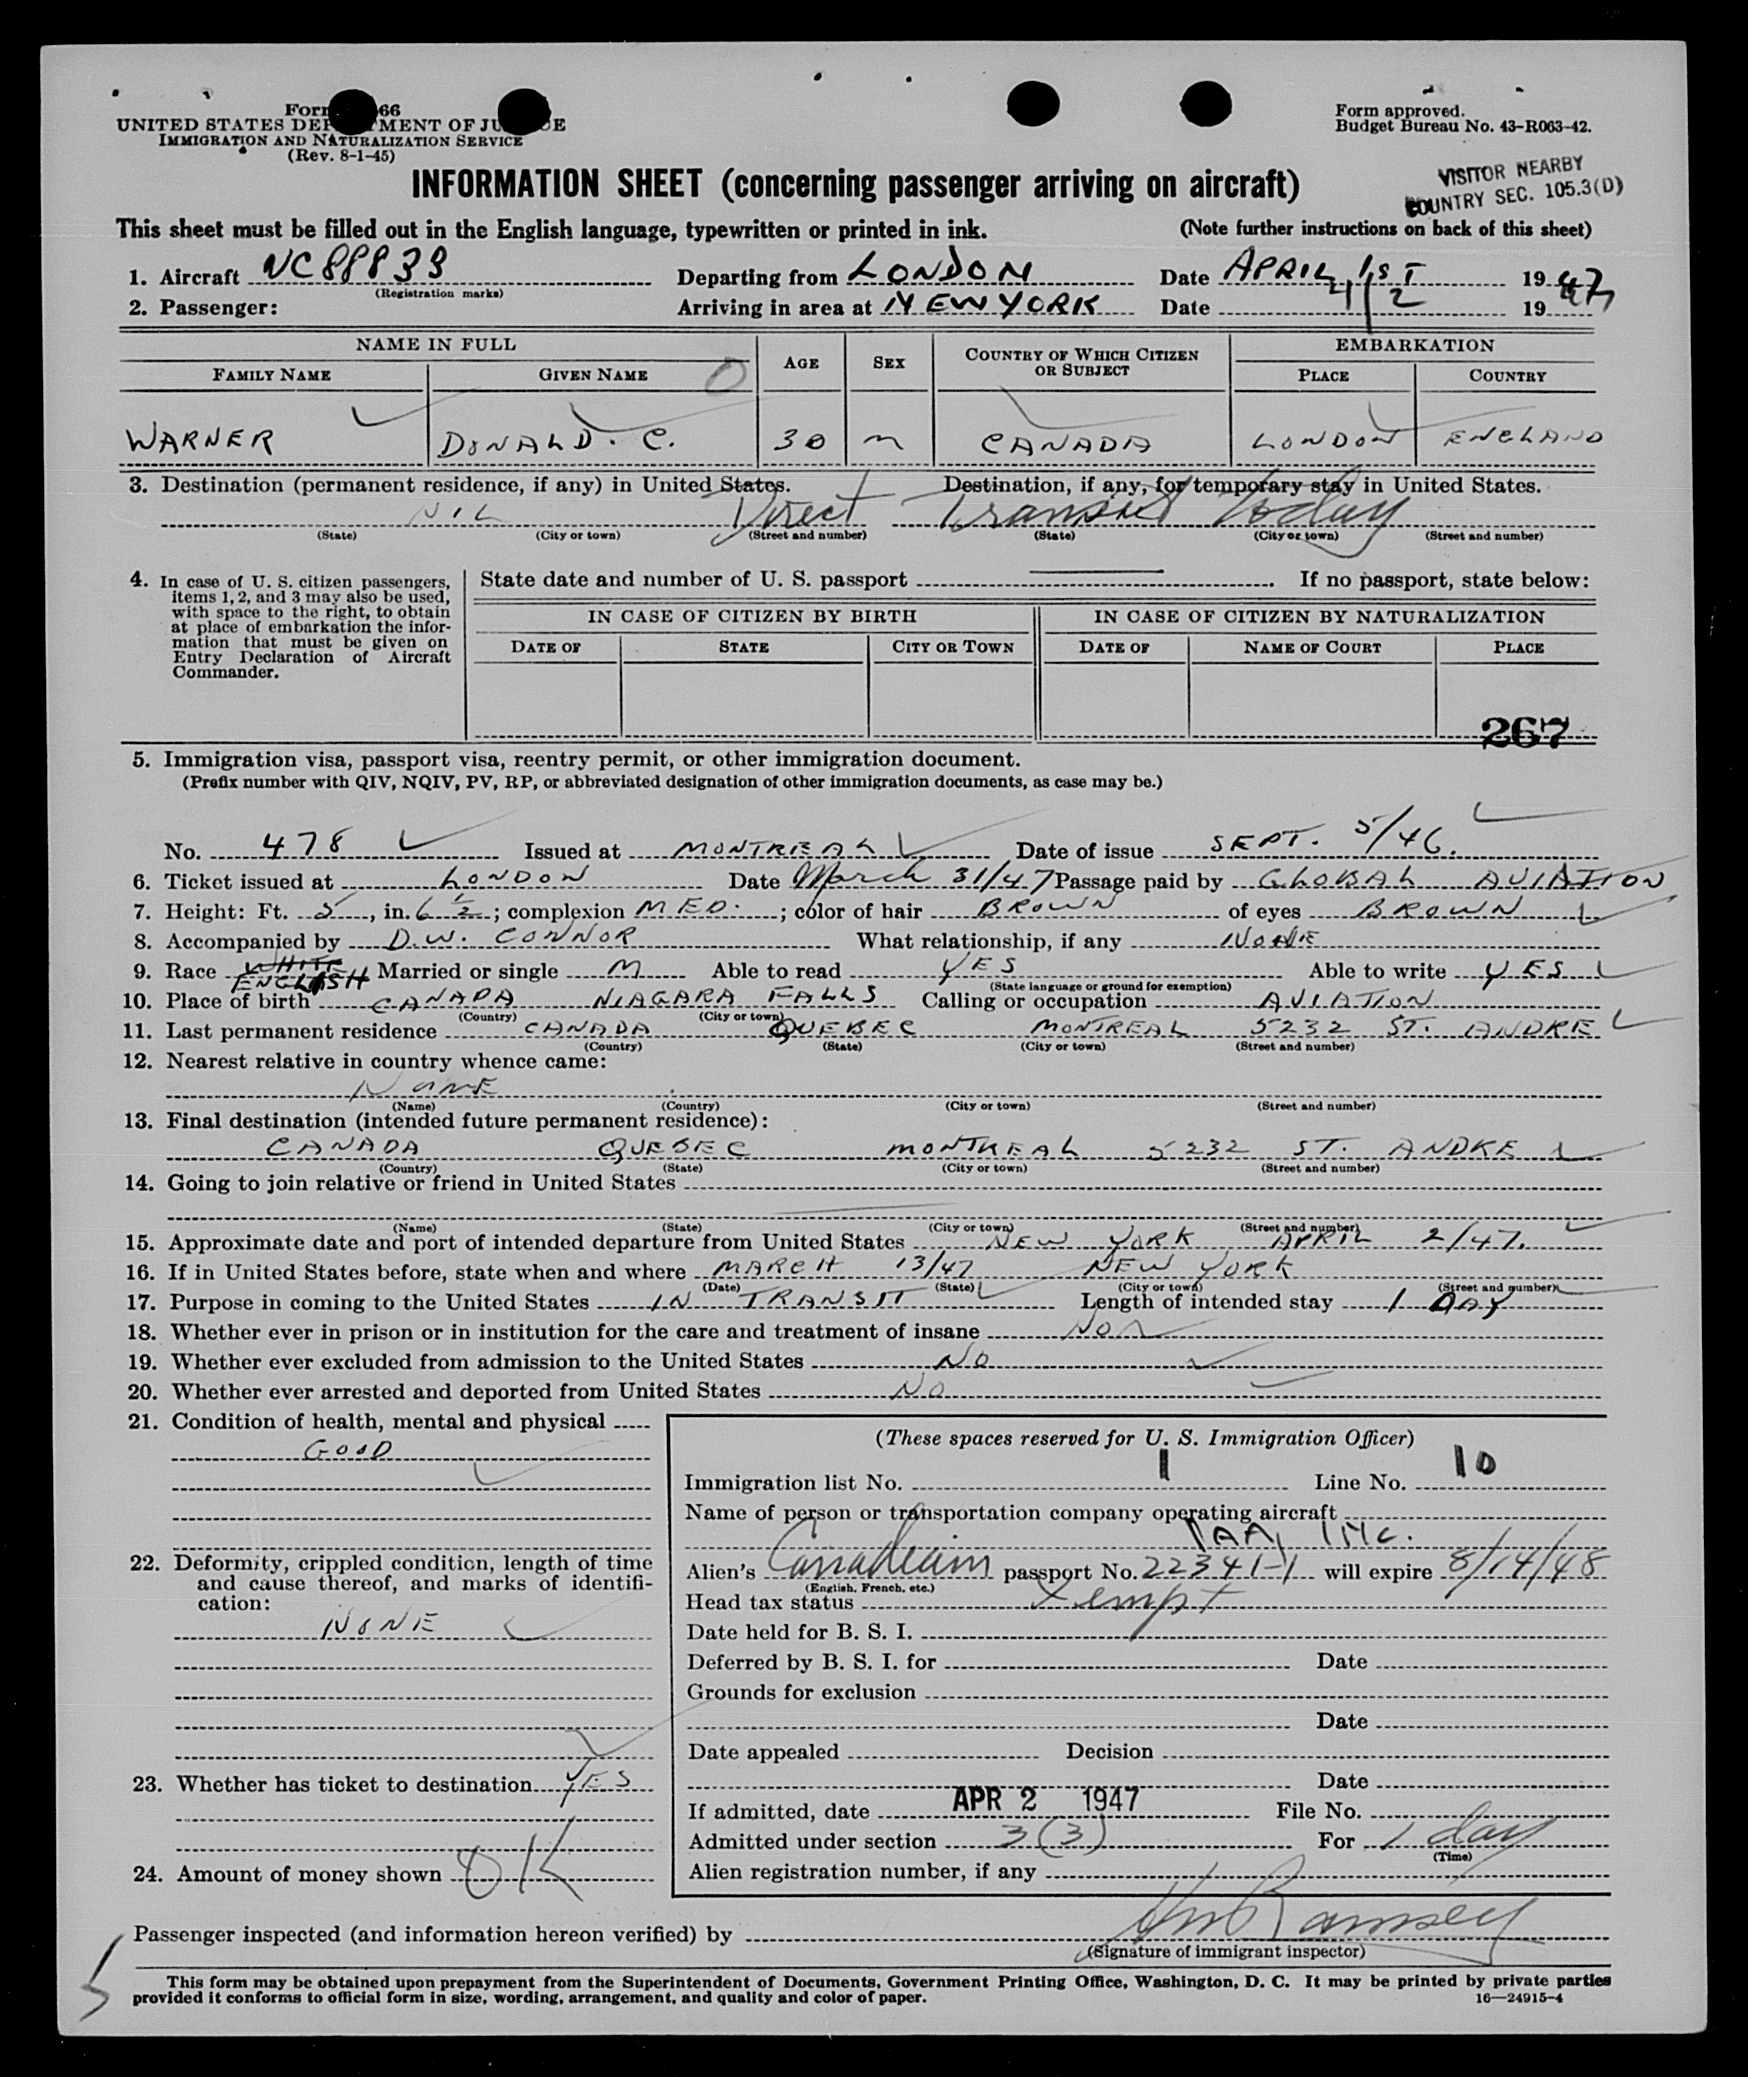 Form 66
UNITED STATES DEPARTMENT OF JUSTICE
IMMIGRATION AND NATURALIZATION SERVICE
(Rev. 8-1-45)
Form approved.
Budget Bureau No. 43-R063-42.
VISITOR NEARBY
COUNTRY SEC. 105.3(D)
INFORMATION SHEET (concerning passenger arriving on aircraft)
This sheet must be filled out in the English language, typewritten or printed in ink. (Note further instructions on back of this sheet)
1. Aircraft NC88833 Departing from LONDON Date APRIL 1ST 1947
(Registration marks)
2. Passenger: Arriving in area at NEW YORK Date 4/2 1947
NAME IN FULL AGE SEX COUNTRY OF WHICH CITIZEN OR SUBJECT EMBARKATION
FAMILY NAME GIVEN NAME PLACE COUNTRY
WARNER DONALD. C. 30 M CANADA LONDON ENGLAND
3. Destination (permanent residence, if any) in United States. Destination, if any, for temporary stay in United States.
NIL Direct Transit Today
(State) (City or town) (Street and number) (State) (City or town) (Street and number)
4. In case of U. S. citizen passengers, items 1, 2, and 3 may also be used, with space to the right, to obtain at place of embarkation the information that must be given on Entry Declaration of Aircraft Commander.
State date and number of U. S. passport If no passport, state below:
IN CASE OF CITIZEN BY BIRTH IN CASE OF CITIZEN BY NATURALIZATION
DATE OF STATE CITY OR TOWN DATE OF NAME OF COURT PLACE
267
5. Immigration visa, passport visa, reentry permit, or other immigration document.
(Prefix number with QIV, NQIV, PV, RP, or abbreviated designation of other immigration documents, as case may be.)
No. 478 Issued at MONTREAL Date of issue SEPT. 5/46.
6. Ticket issued at LONDON Date March 31/47 Passage paid by GLOBAL AVIATION
7. Height: Ft. 5, in. 6 1/2; complexion MED.; color of hair BROWN of eyes BROWN
8. Accompanied by D.W. CONNOR What relationship, if any NONE
9. Race WHITE ENGLISH Married or single M Able to read YES Able to write YES
(State language or ground for exemption)
10. Place of birth CANADA NIAGARA FALLS Calling or occupation AVIATION
(Country) (City or town)
11. Last permanent residence CANADA QUEBEC MONTREAL 5232 ST. ANDRE
(Country) (State) (City or town) (Street and number)
12. Nearest relative in country whence came:
NONE
(Name) (Country) (City or town) (Street and number)
13. Final destination (intended future permanent residence):
CANADA QUEBEC MONTREAL 5232 ST. ANDRE
(Country) (State) (City or town) (Street and number)
14. Going to join relative or friend in United States
(Name) (State) (City or town) (Street and number)
15. Approximate date and port of intended departure from United States NEW YORK APRIL 2/47.
16. If in United States before, state when and where MARCH 13/47 NEW YORK
(Date) (State) (City or town) (Street and number)
17. Purpose in coming to the United States IN TRANSIT Length of intended stay 1 DAY
18. Whether ever in prison or in institution for the care and treatment of insane NO
19. Whether ever excluded from admission to the United States NO
20. Whether ever arrested and deported from United States NO
21. Condition of health, mental and physical
GOOD
22. Deformity, crippled condition, length of time and cause thereof, and marks of identification:
NONE
23. Whether has ticket to destination YES
24. Amount of money shown OK
(These spaces reserved for U. S. Immigration Officer)
Immigration list No. 1 Line No. 10
Name of person or transportation company operating aircraft
INC.
Alien's Canadian passport No. 22341-1 will expire 8/14/48
(English, French, etc.)
Head tax status Xempt
Date held for B. S. I.
Deferred by B. S. I. for Date
Grounds for exclusion
Date
Date appealed Decision
Date
If admitted, date APR 2 1947 File No.
Admitted under section 3(3) For 1 day
(Time)
Alien registration number, if any
Passenger inspected (and information hereon verified) by Ramsey
(Signature of immigrant inspector)
This form may be obtained upon prepayment from the Superintendent of Documents, Government Printing Office, Washington, D. C. It may be printed by private parties
provided it conforms to official form in size, wording, arrangement, and quality and color of paper. 16—24915-4